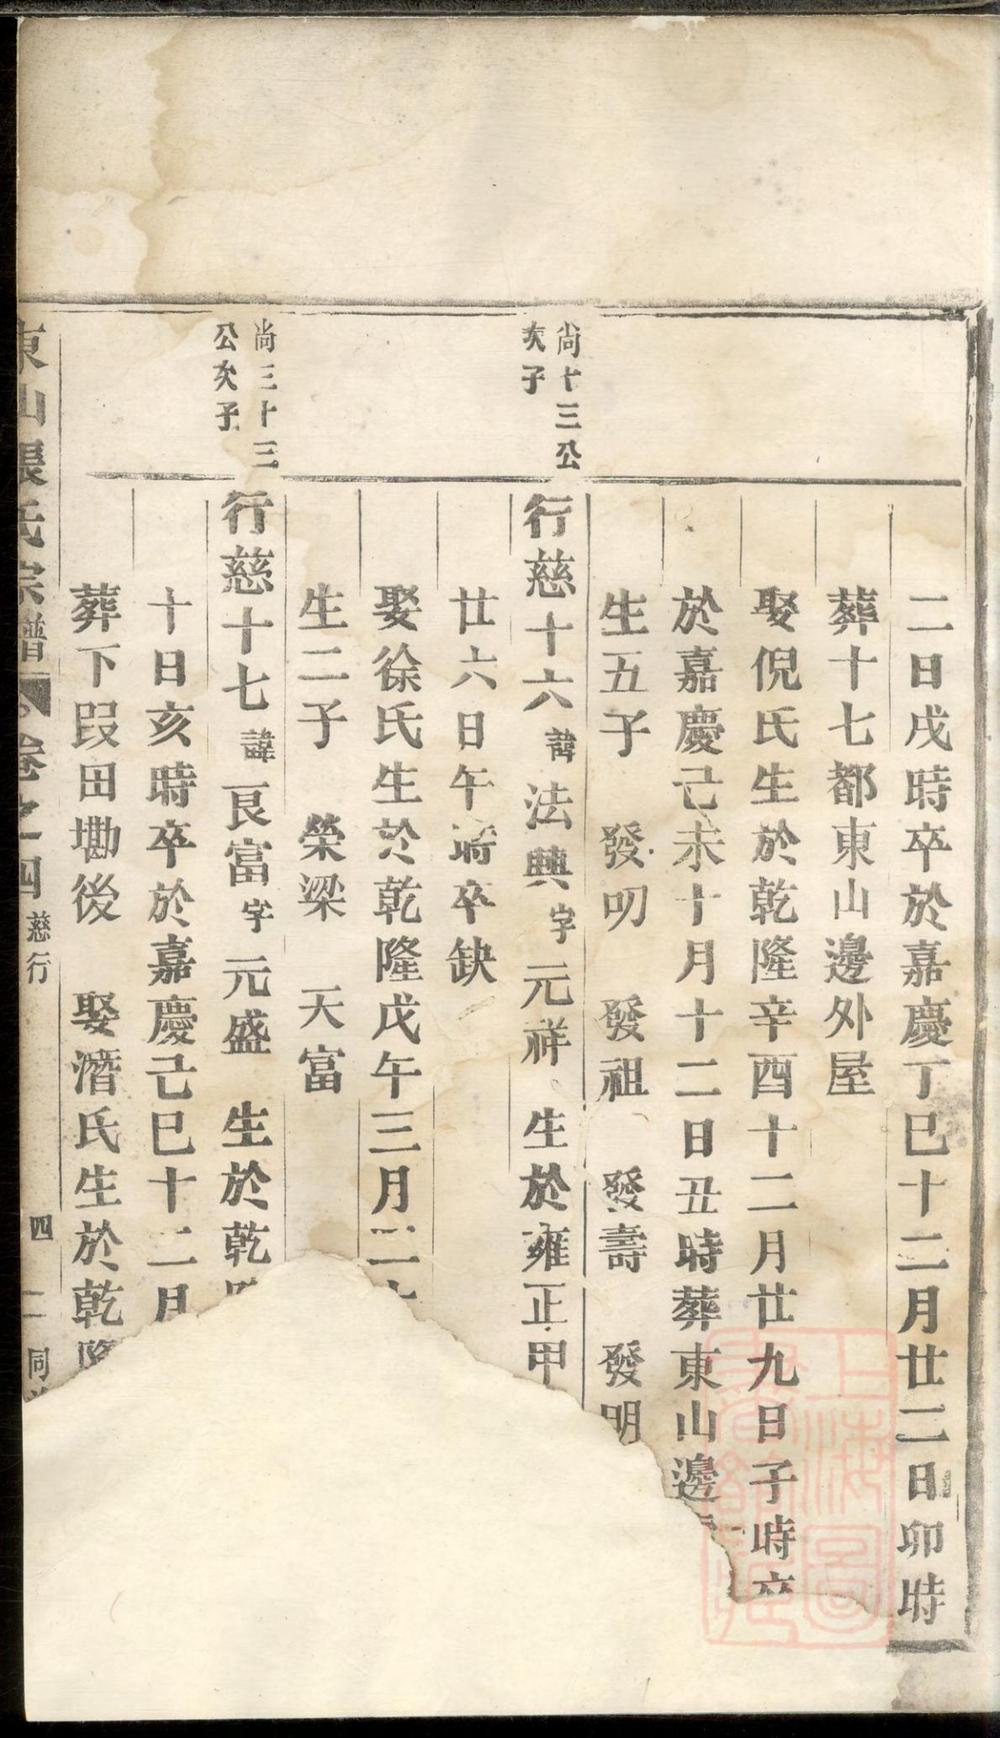 二日戌時卒於嘉慶丁巳十二月廿二日卯時
葬十七都東山邊外屋
娶倪氏生於乾隆辛酉十二月廿九日子時卒
於嘉慶己未十月十二日丑時葬東山邊
生五子 發叨 發祖 發壽 發明
尚十三公
次子
行慈十六諱法興字元祥 生於雍正甲
廿六日午時卒缺
娶徐氏生於乾隆戊午三月二十
生二子 榮梁 天富
尚三十三
公次子
行慈十七諱良富字元盛 生於乾隆
十日亥時卒於嘉慶己巳十二月
葬下叚田墈後 娶潛氏生於乾隆
東山張氏宗譜 卷之四 慈行 四 二 同
上海圖
書館藏